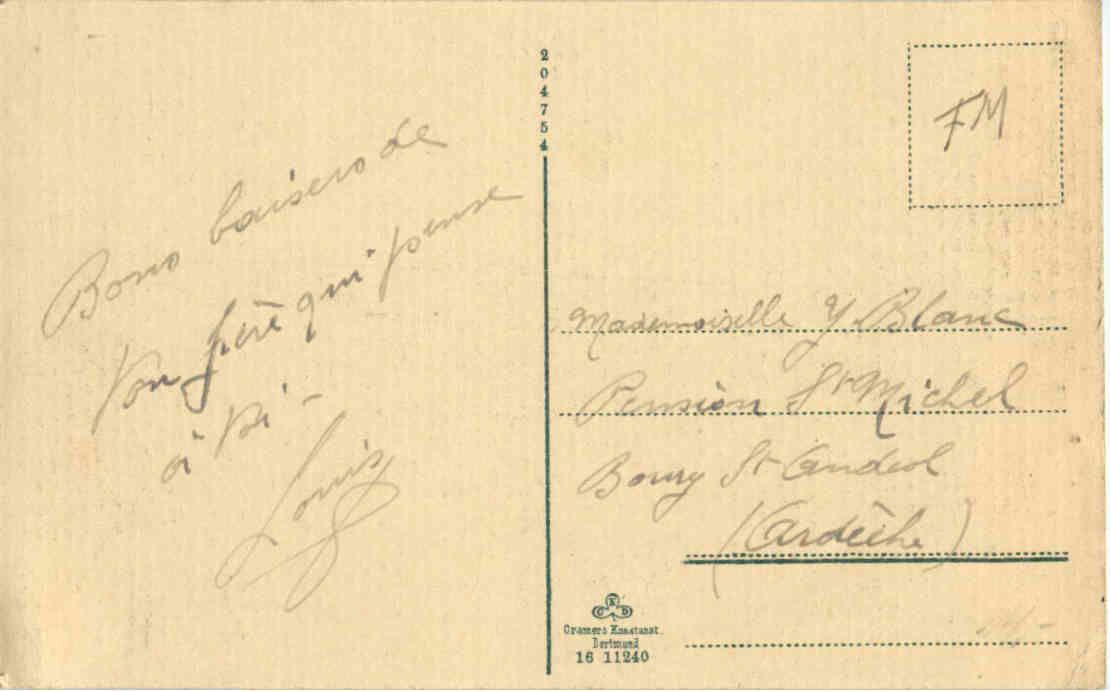 Bons baisers de
ton père qui pense
à toi -
Louis
204754
FM
Mademoiselle Y. Blanc
Pension St Michel
Bourg St Andeol
(Ardèche)
CKD
Cramers Kunstanst.
Dortmund
16 11240